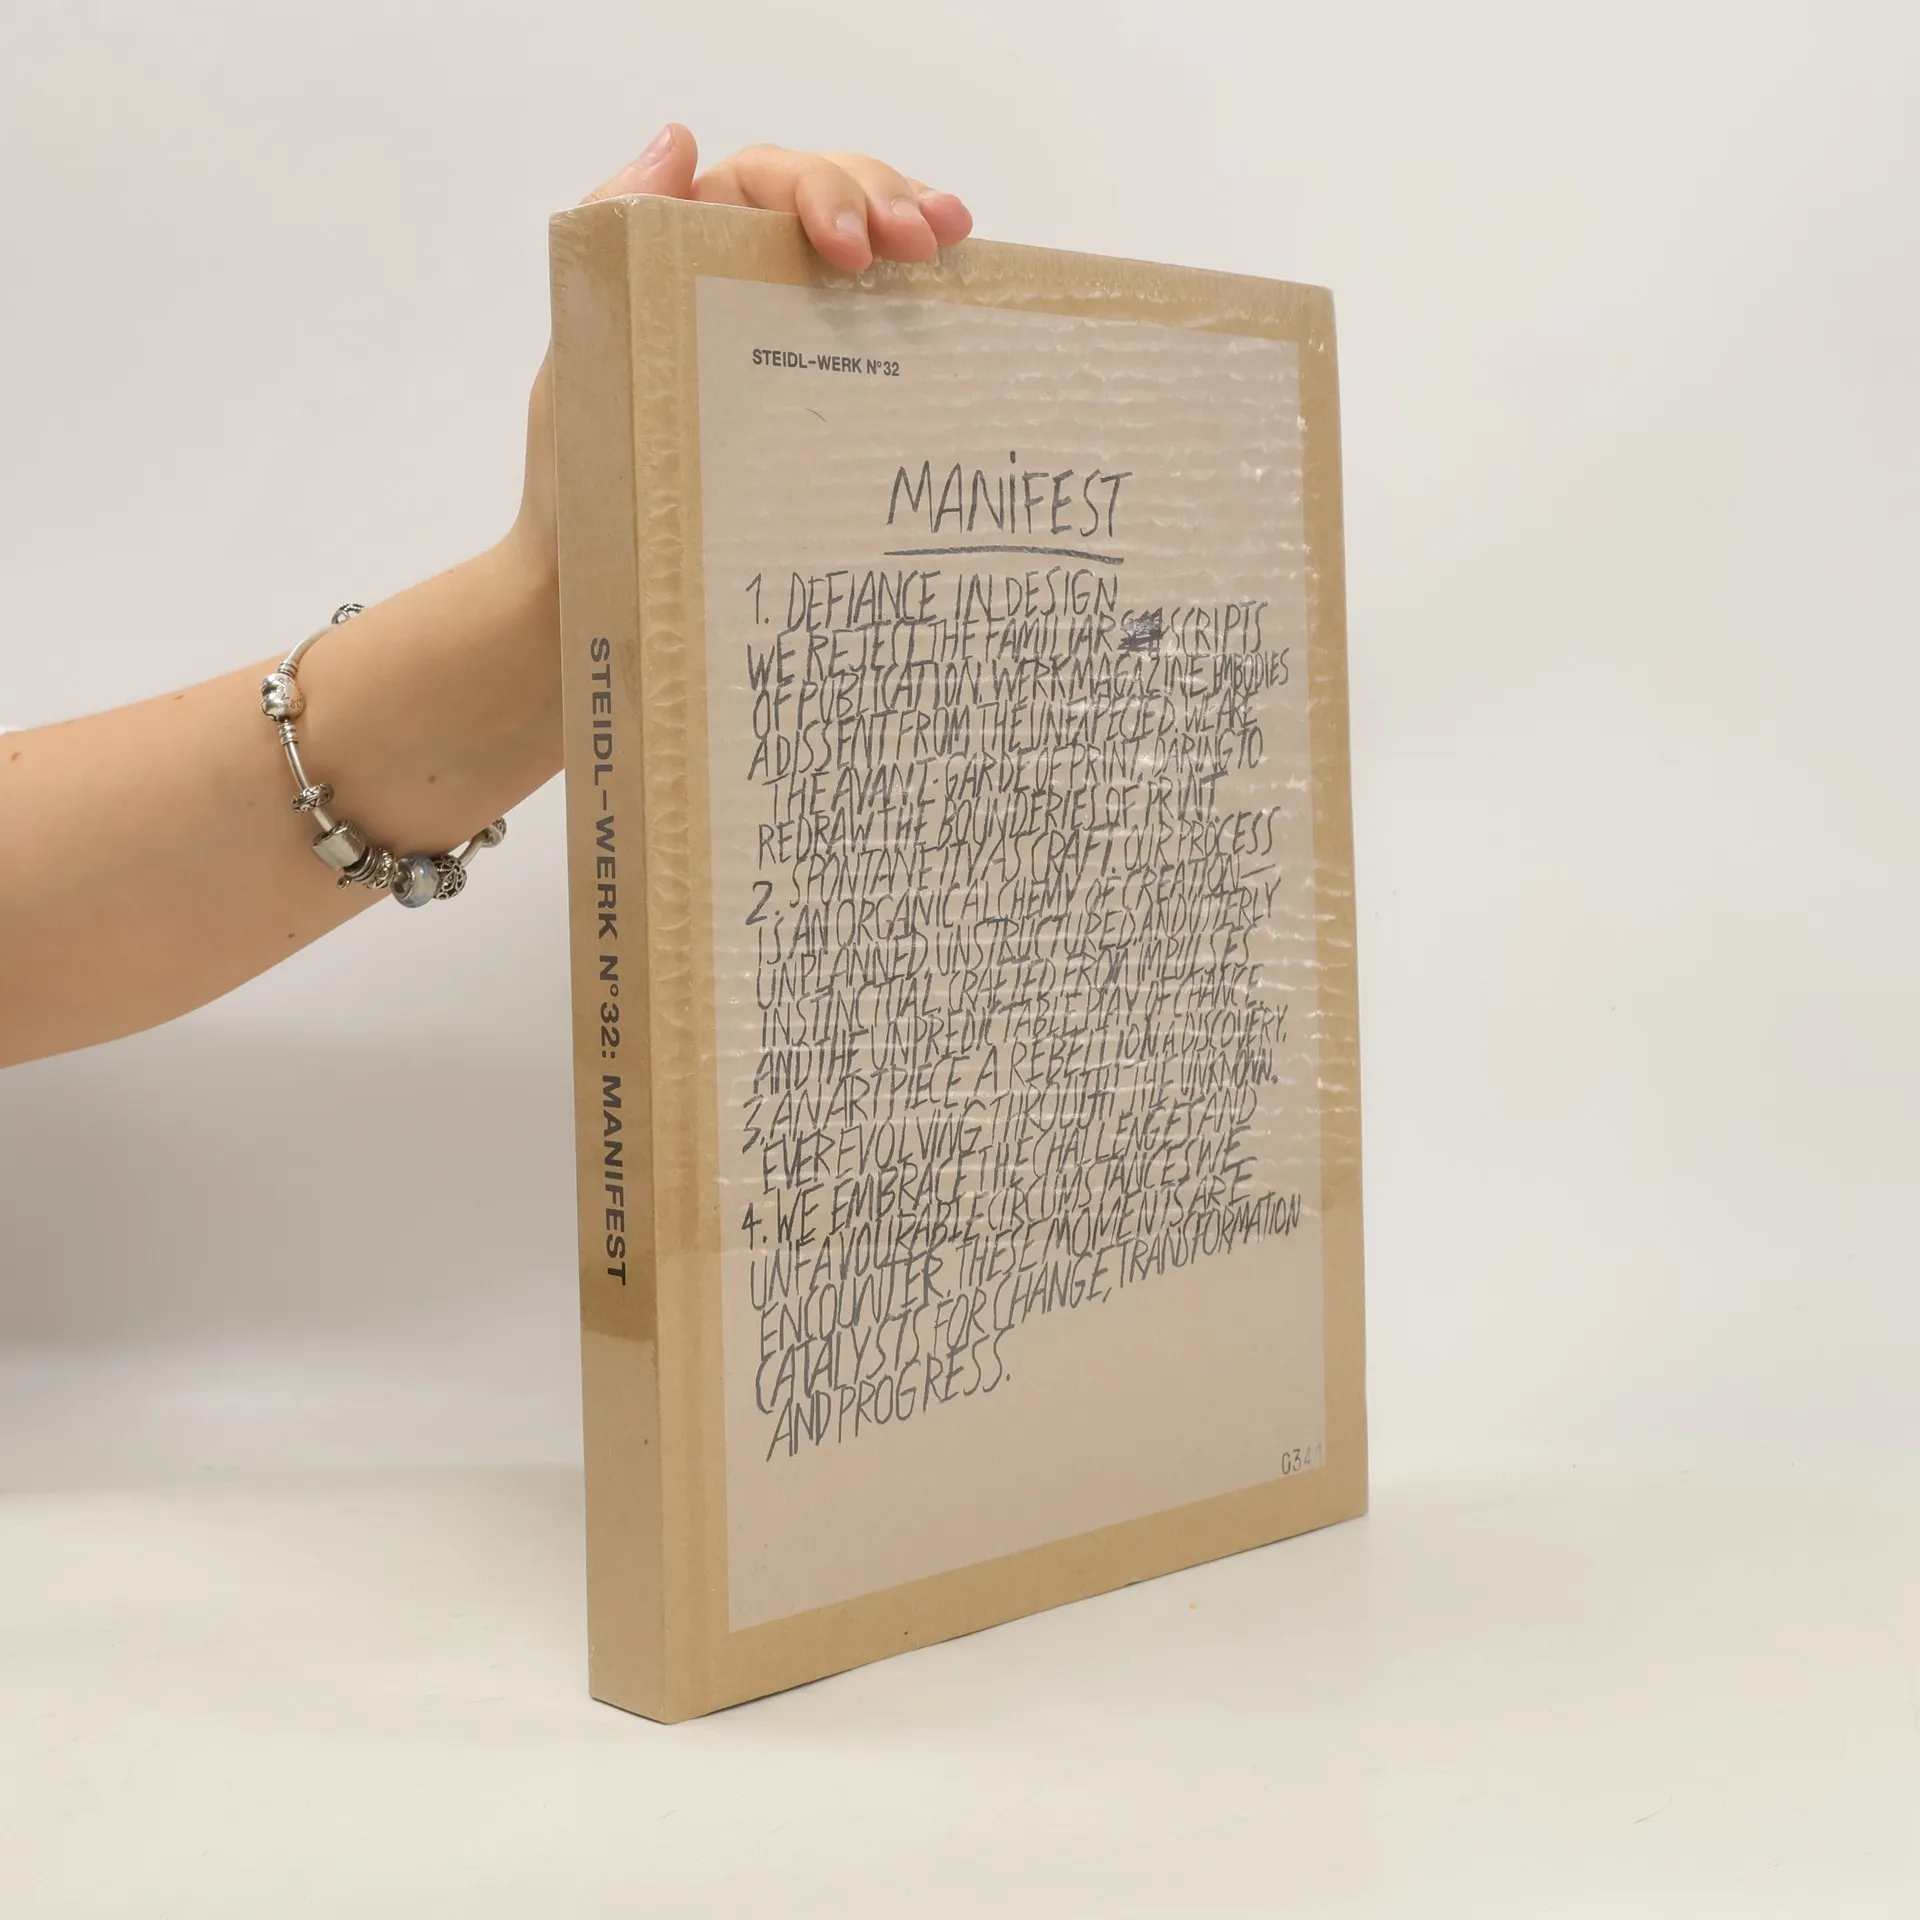 STEIDL-WERK Nº32
MANIFEST
1. DEFIANCE IN DESIGN
WE REJECT THE FAMILIAR SCRIPTS
OF PUBLICATION. WERK MAGAZINE EMBODIES
A DISSENT FROM THE UNEXPECTED. WE ARE
THE AVANT-GARDE OF PRINT, DARING TO
REDRAW THE BOUNDERIES OF PRINT.
2. SPONTANEITY AS CRAFT. OUR PROCESS
IS AN ORGANIC ALCHEMY OF CREATION—
UNPLANNED, UNSTRUCTURED, AND UTTERLY
INSTINCTUAL, CRAFTED FROM IMPULSES
AND THE UNPREDICTABLE PLAY OF CHANCE.
3. AN ART PIECE, A REBELLION, A DISCOVERY,
EVER EVOLVING, THROUGH THE UNKNOWN.
4. WE EMBRACE THE CHALLENGES AND
UNFAVOURABLE CIRCUMSTANCES WE
ENCOUNTER. THESE MOMENTS ARE
CATALYSTS FOR CHANGE, TRANSFORMATION
AND PROGRESS.
STEIDL-WERK Nº32: MANIFEST